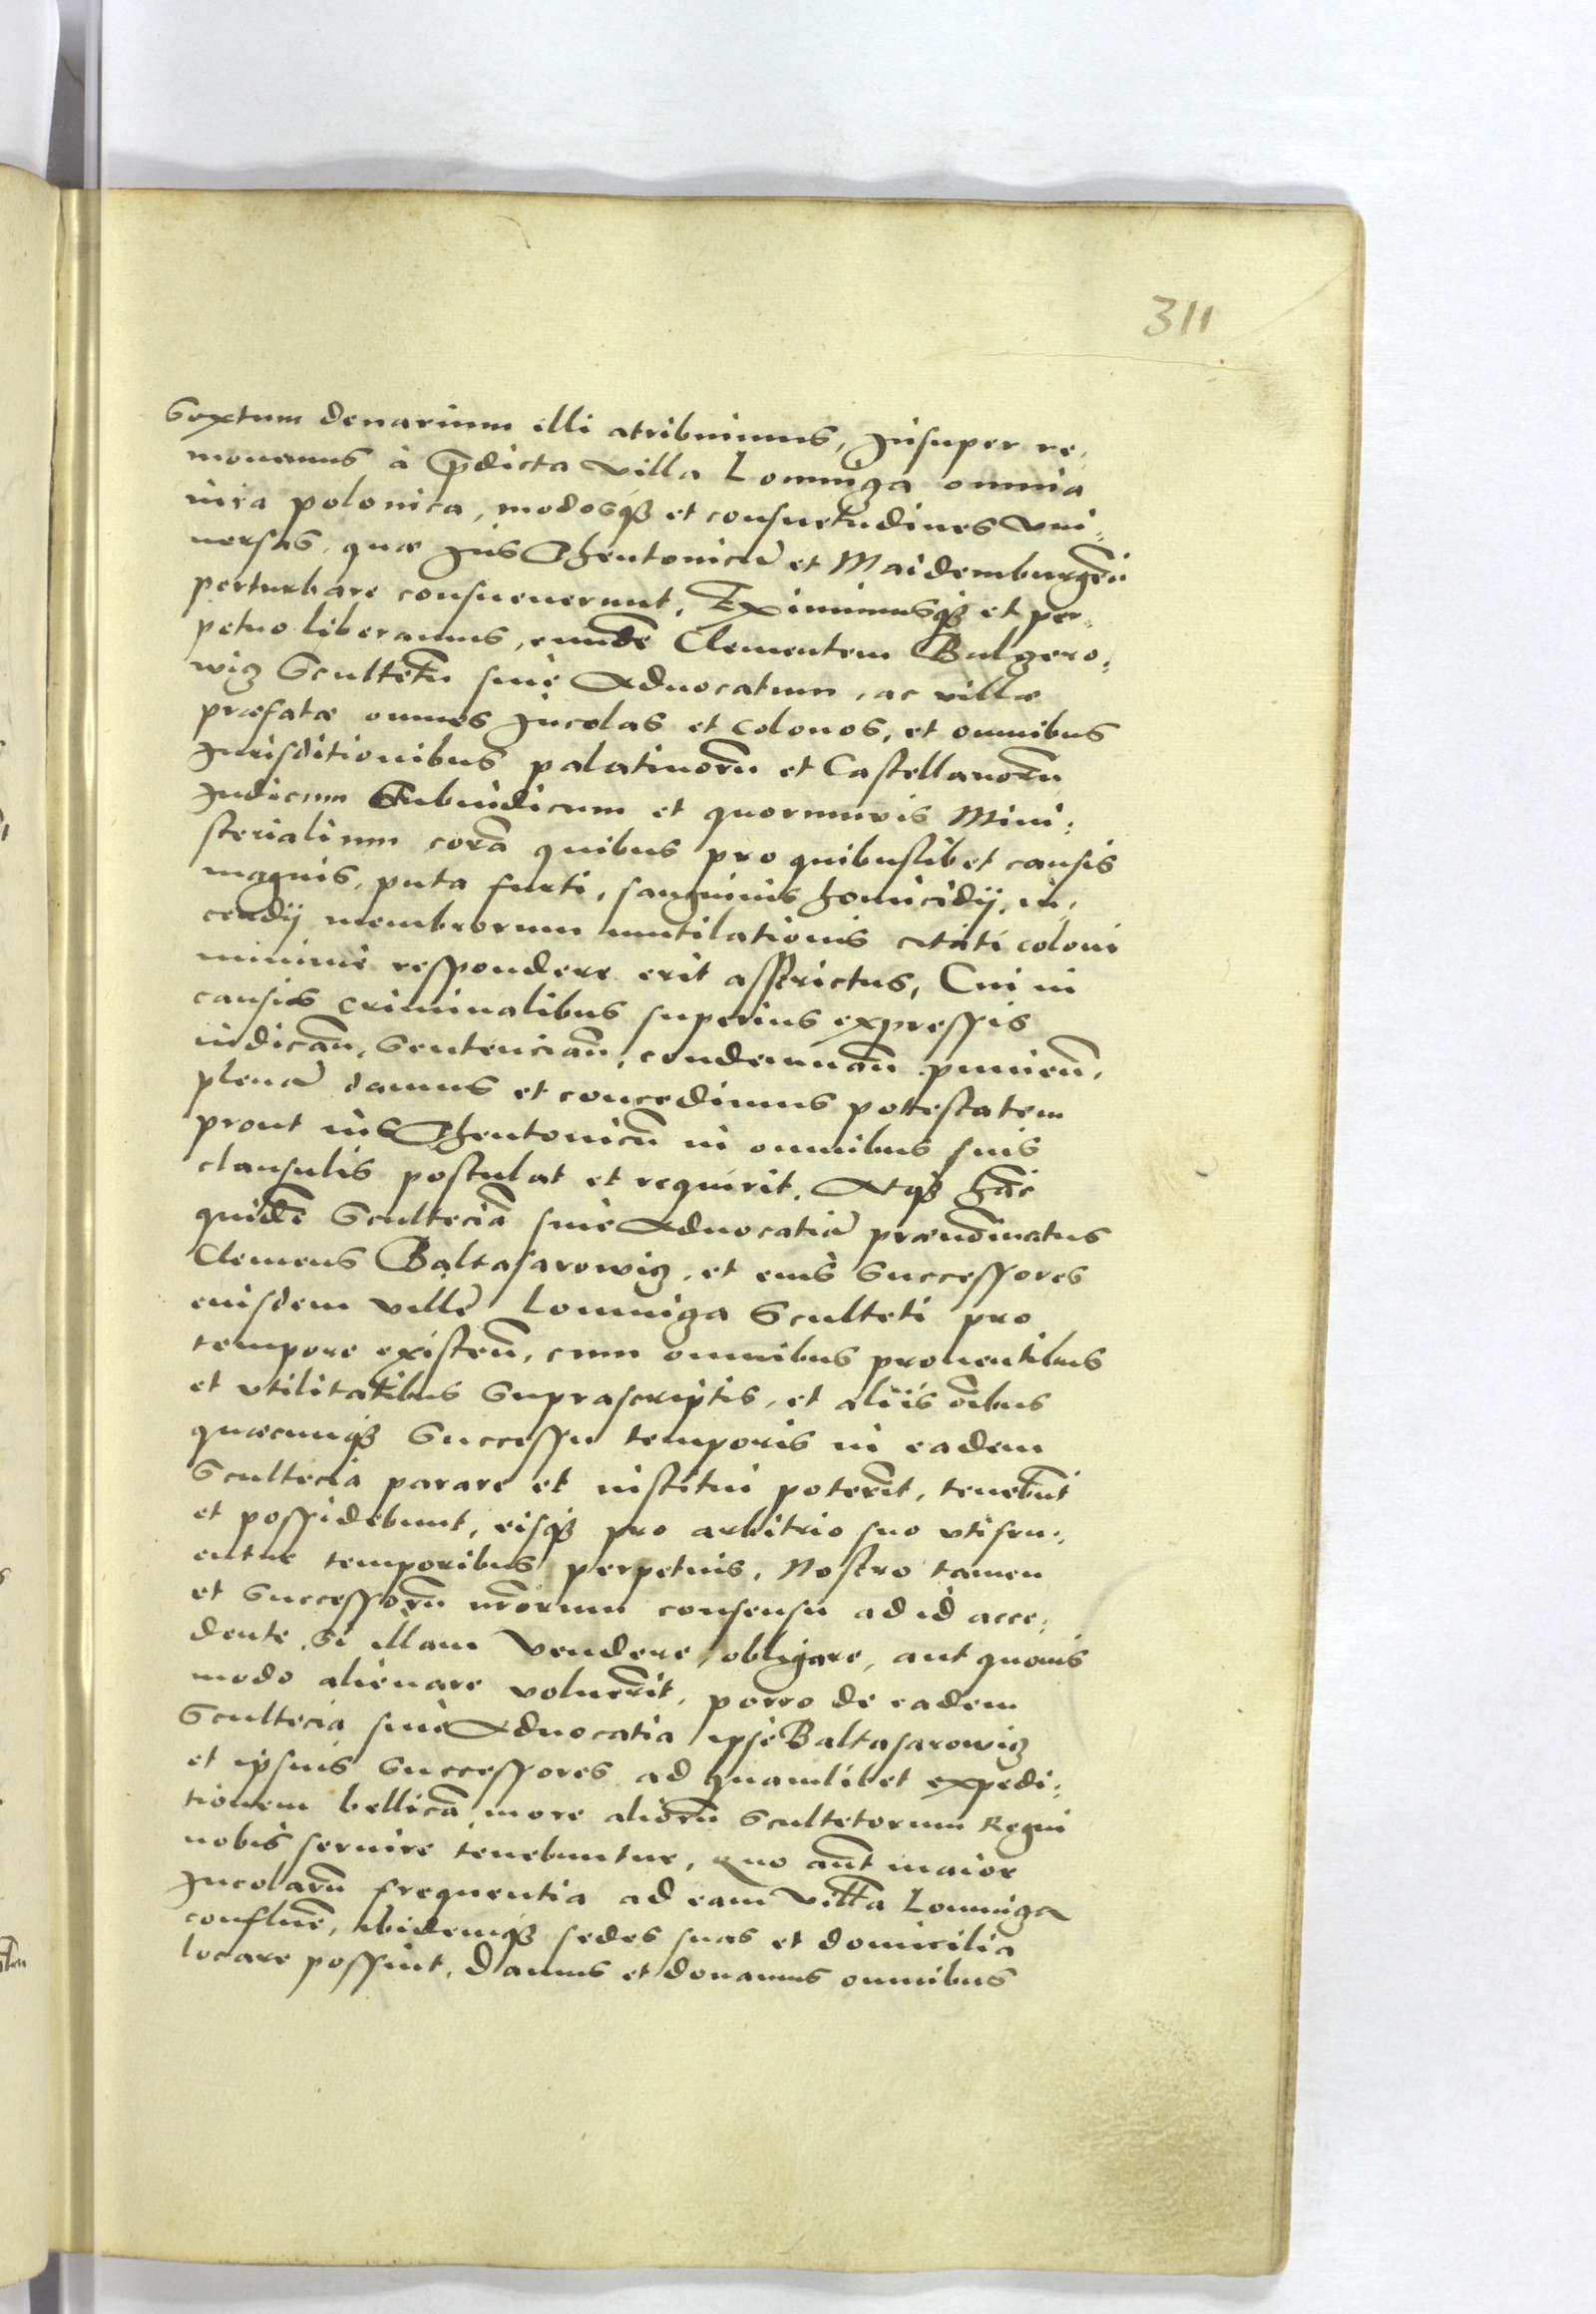 311
Sextum denarium illi atribuimus, Insuper re=
mouemus à p̄dicta villa Lomniga omnia
iura polonica, modosq3 et consuetudines vni=
uersas, quae Ius Theutonicū et Maidemburgeñ
perturbare consueuerunt, Eximimusq3 et per=
petuo liberamus, eundē Clementem Balzero=
wiz Scultetū siue Aduocatum, ac villae
praefatae omnes Incolas et colonos, et omnibus
Iurisditionibus palatinorū et Castellanorū
Iudicum Subiudicum et quorumvis Mini=
sterialium corā quibus pro quibuslibet causis
magnis, puta furti, sanguinis homicidij, in=
cendij membrorum mutilationis citati coloni
minimè respondere erit asstrictus, Cui in
causis criminalibus superius expressis
iudicañ, Sentenciañ, condemnañ punieñ,
plenā damus et concedimus pottestatem
prout ius Theutonicū in omnibus suis
clausulis postulat et requirit, Atq3 hāc
quidē Sculteciā siue Aduocatiā praenōinatus
Clemens Baltasarowiz, et eius Successores
eiusdem villae Lomniga Sculteti pro
tempore existeñ, cum omnibus prouentibus
et vtilitatibus Suprascriptis, et aliis oībus
quaecunq3 Successu temporis in eadem
Scultecia parare et institui poterīt, tenebūt
et possidebunt, eisq3 pro arbitrio suo vtifru=
entur temporibus perpetuis, Nostro tamen
et Successorū nrōrum consensu ad id acce=
dente, Si illam vendere, obligare, aut quouis
modo alienare voluerīt, porro de eadem
Scultecia siue Aduocatia ipse Baltasarowiz
et ipsius Successores ad quamlibet expedi=
tionem bellicā more aliorū Scultetorum Regni
nobis seruire tenebuntur, Quo aūt maior
Incolarū frequentia ad eam villā Lomniga
confluēr, ibidemq3 sedes suas et domicilia
locare possint, Damus et donamus omnibus